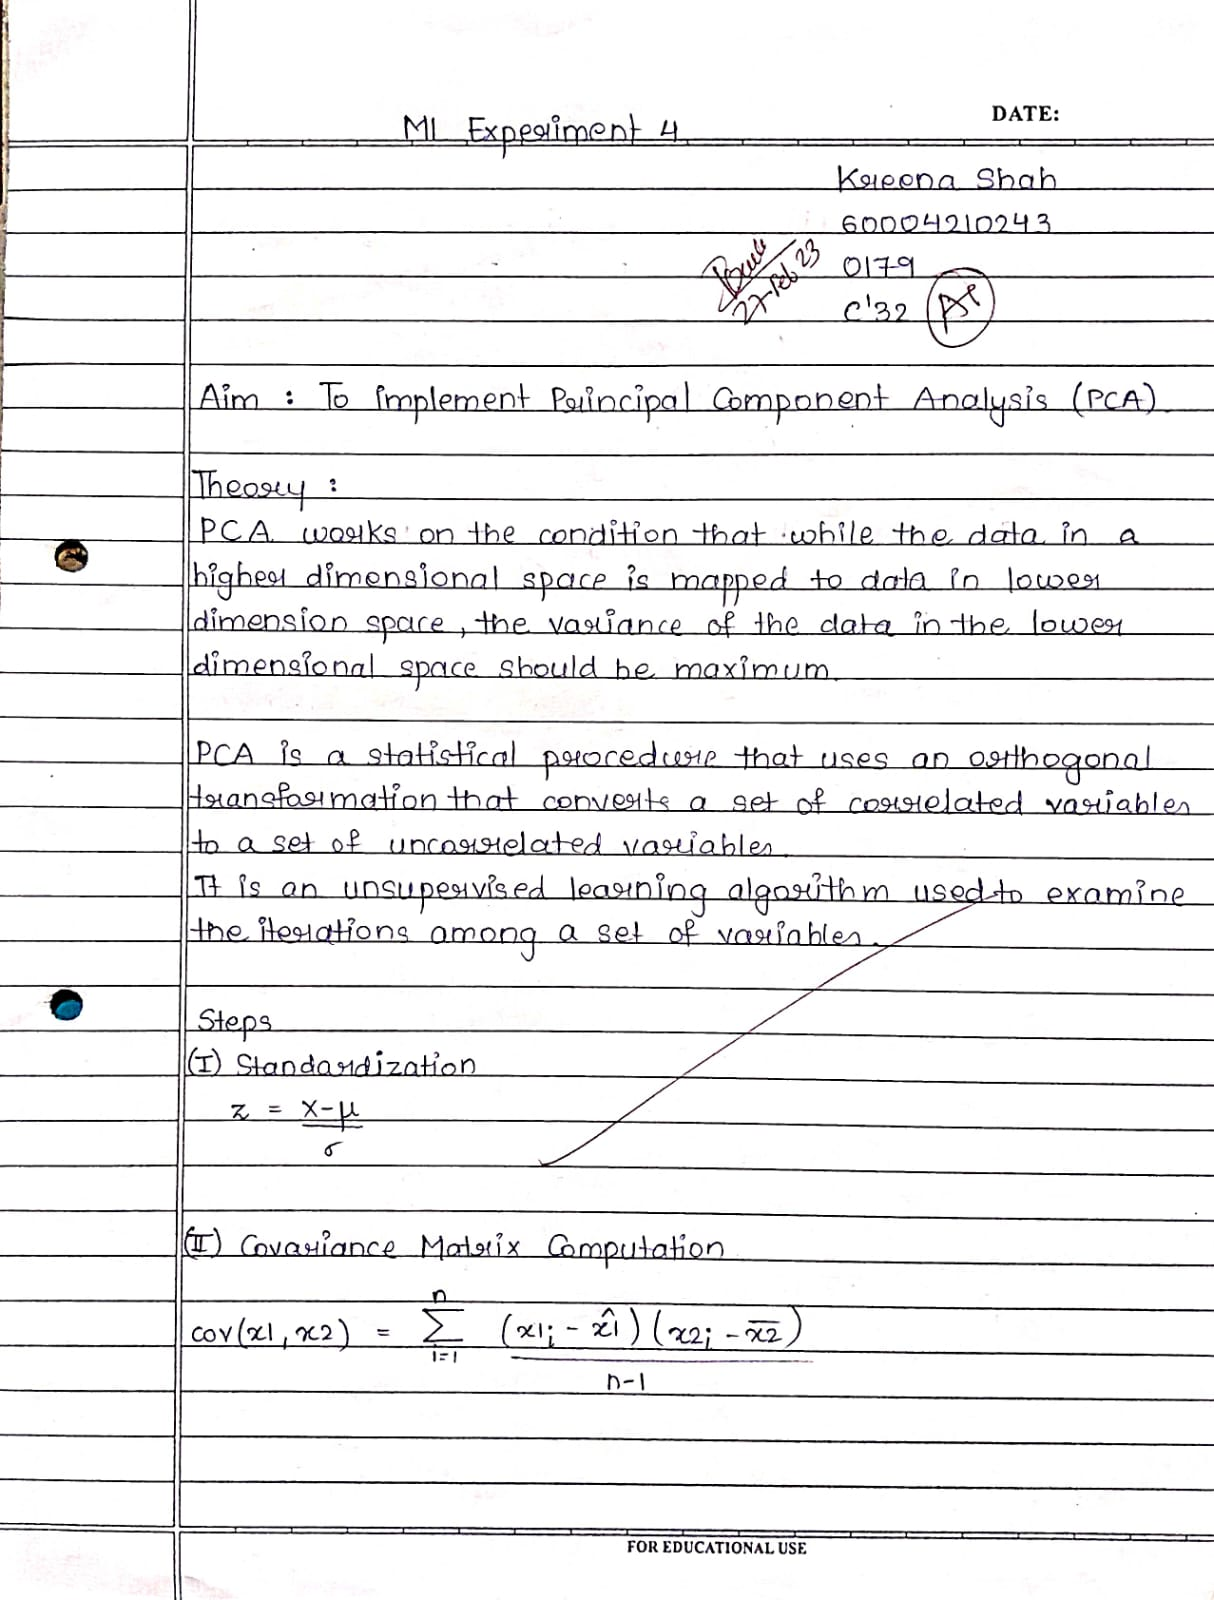 DATE:
ML Experiment 4
Kreena Shah
60004210243
27-Feb 23
C'32 A+
Aim : To implement Principal Component Analysis (PCA).
Theory :
PCA works on the condition that while the data in a
higher dimensional space is mapped to data in lower
dimension space, the variance of the data in the lower
dimensional space should be maximum.
PCA is a statistical procedure that uses an orthogonal
transformation that converts a set of correlated variables
to a set of uncorrelated variables.
It is an unsupervised learning algorithm used to examine
the iterations among a set of variables.
Steps
(I) Standardization
z = x-μ
σ
(II) Covariance Matrix Computation
n
cov(x1, x2) = Σ (x1ᵢ - x̂1) (x2ᵢ - x̅2̅)
i=1
n-1
FOR EDUCATIONAL USE